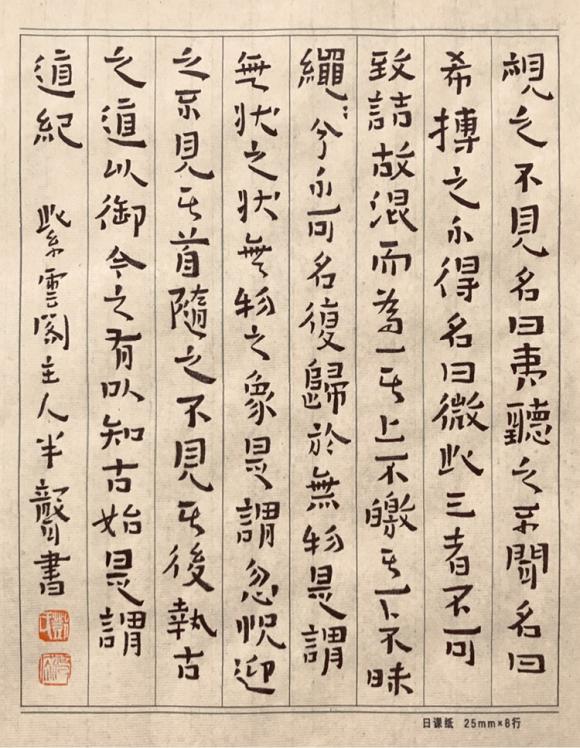 視之不見名曰夷聽之不聞名曰
希搏之不得名曰微此三者不可
致詰故混而為一其上不皦其下不昧
繩〻兮不可名復歸於無物是謂
無狀之狀無物之象是謂忽恍迎
之不見其首隨之不見其後執古
之道以御今之有以知古始是謂
道紀 紫雲閣主人半聾書
日课纸 25mm×8行